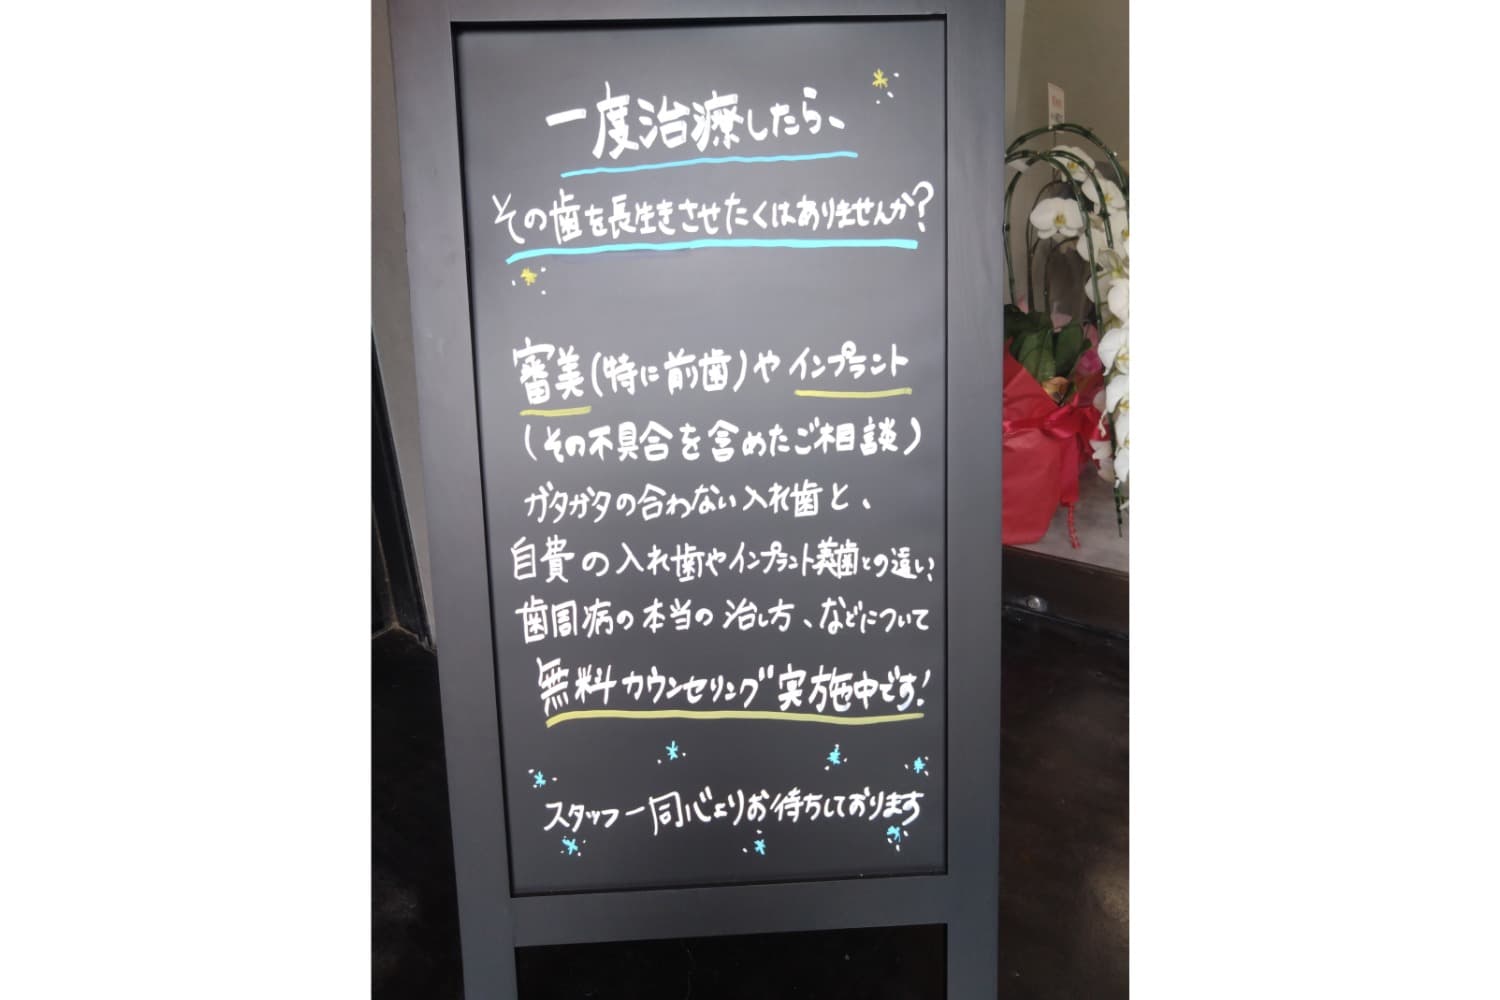 一度治療したら、
その歯を長生きさせたくはありませんか?
審美(特に前歯)やインプラント
(その不具合を含めたご相談)
ガタガタの合わない入れ歯と、
自費の入れ歯やインプラント義歯との違い、
歯周病の本当の治し方、などについて
無料カウンセリング実施中です!
スタッフ一同心よりお待ちしております